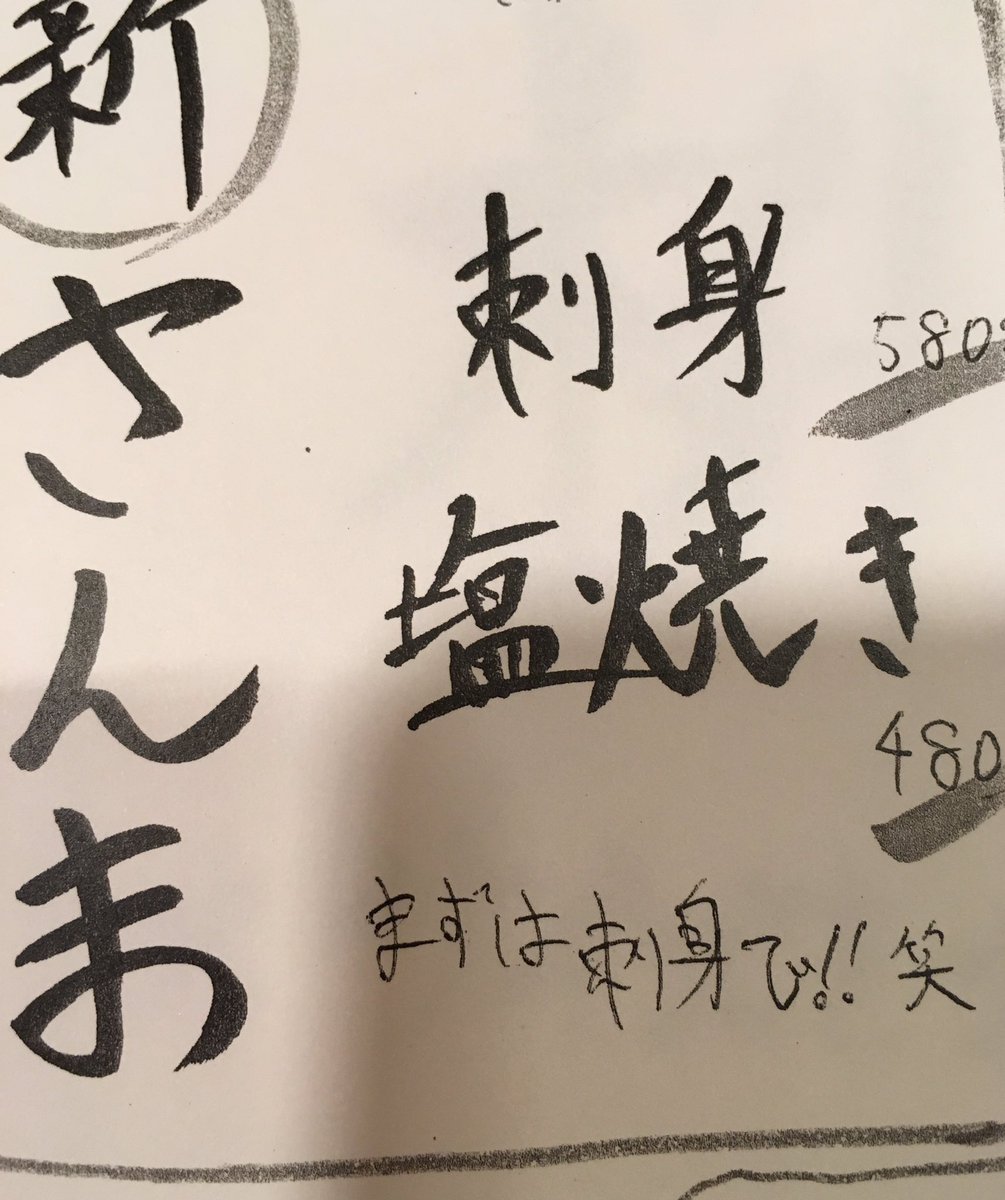 新
さんま
刺身
580
塩焼き
480
まずは刺身で!!笑